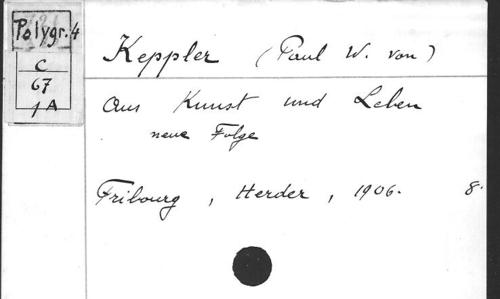 Polygr. 4
C
67
1A
Keppler (Paul W. von)
Aus Kunst und Leben
neue Folge
Fribourg, Herder, 1906. 8°